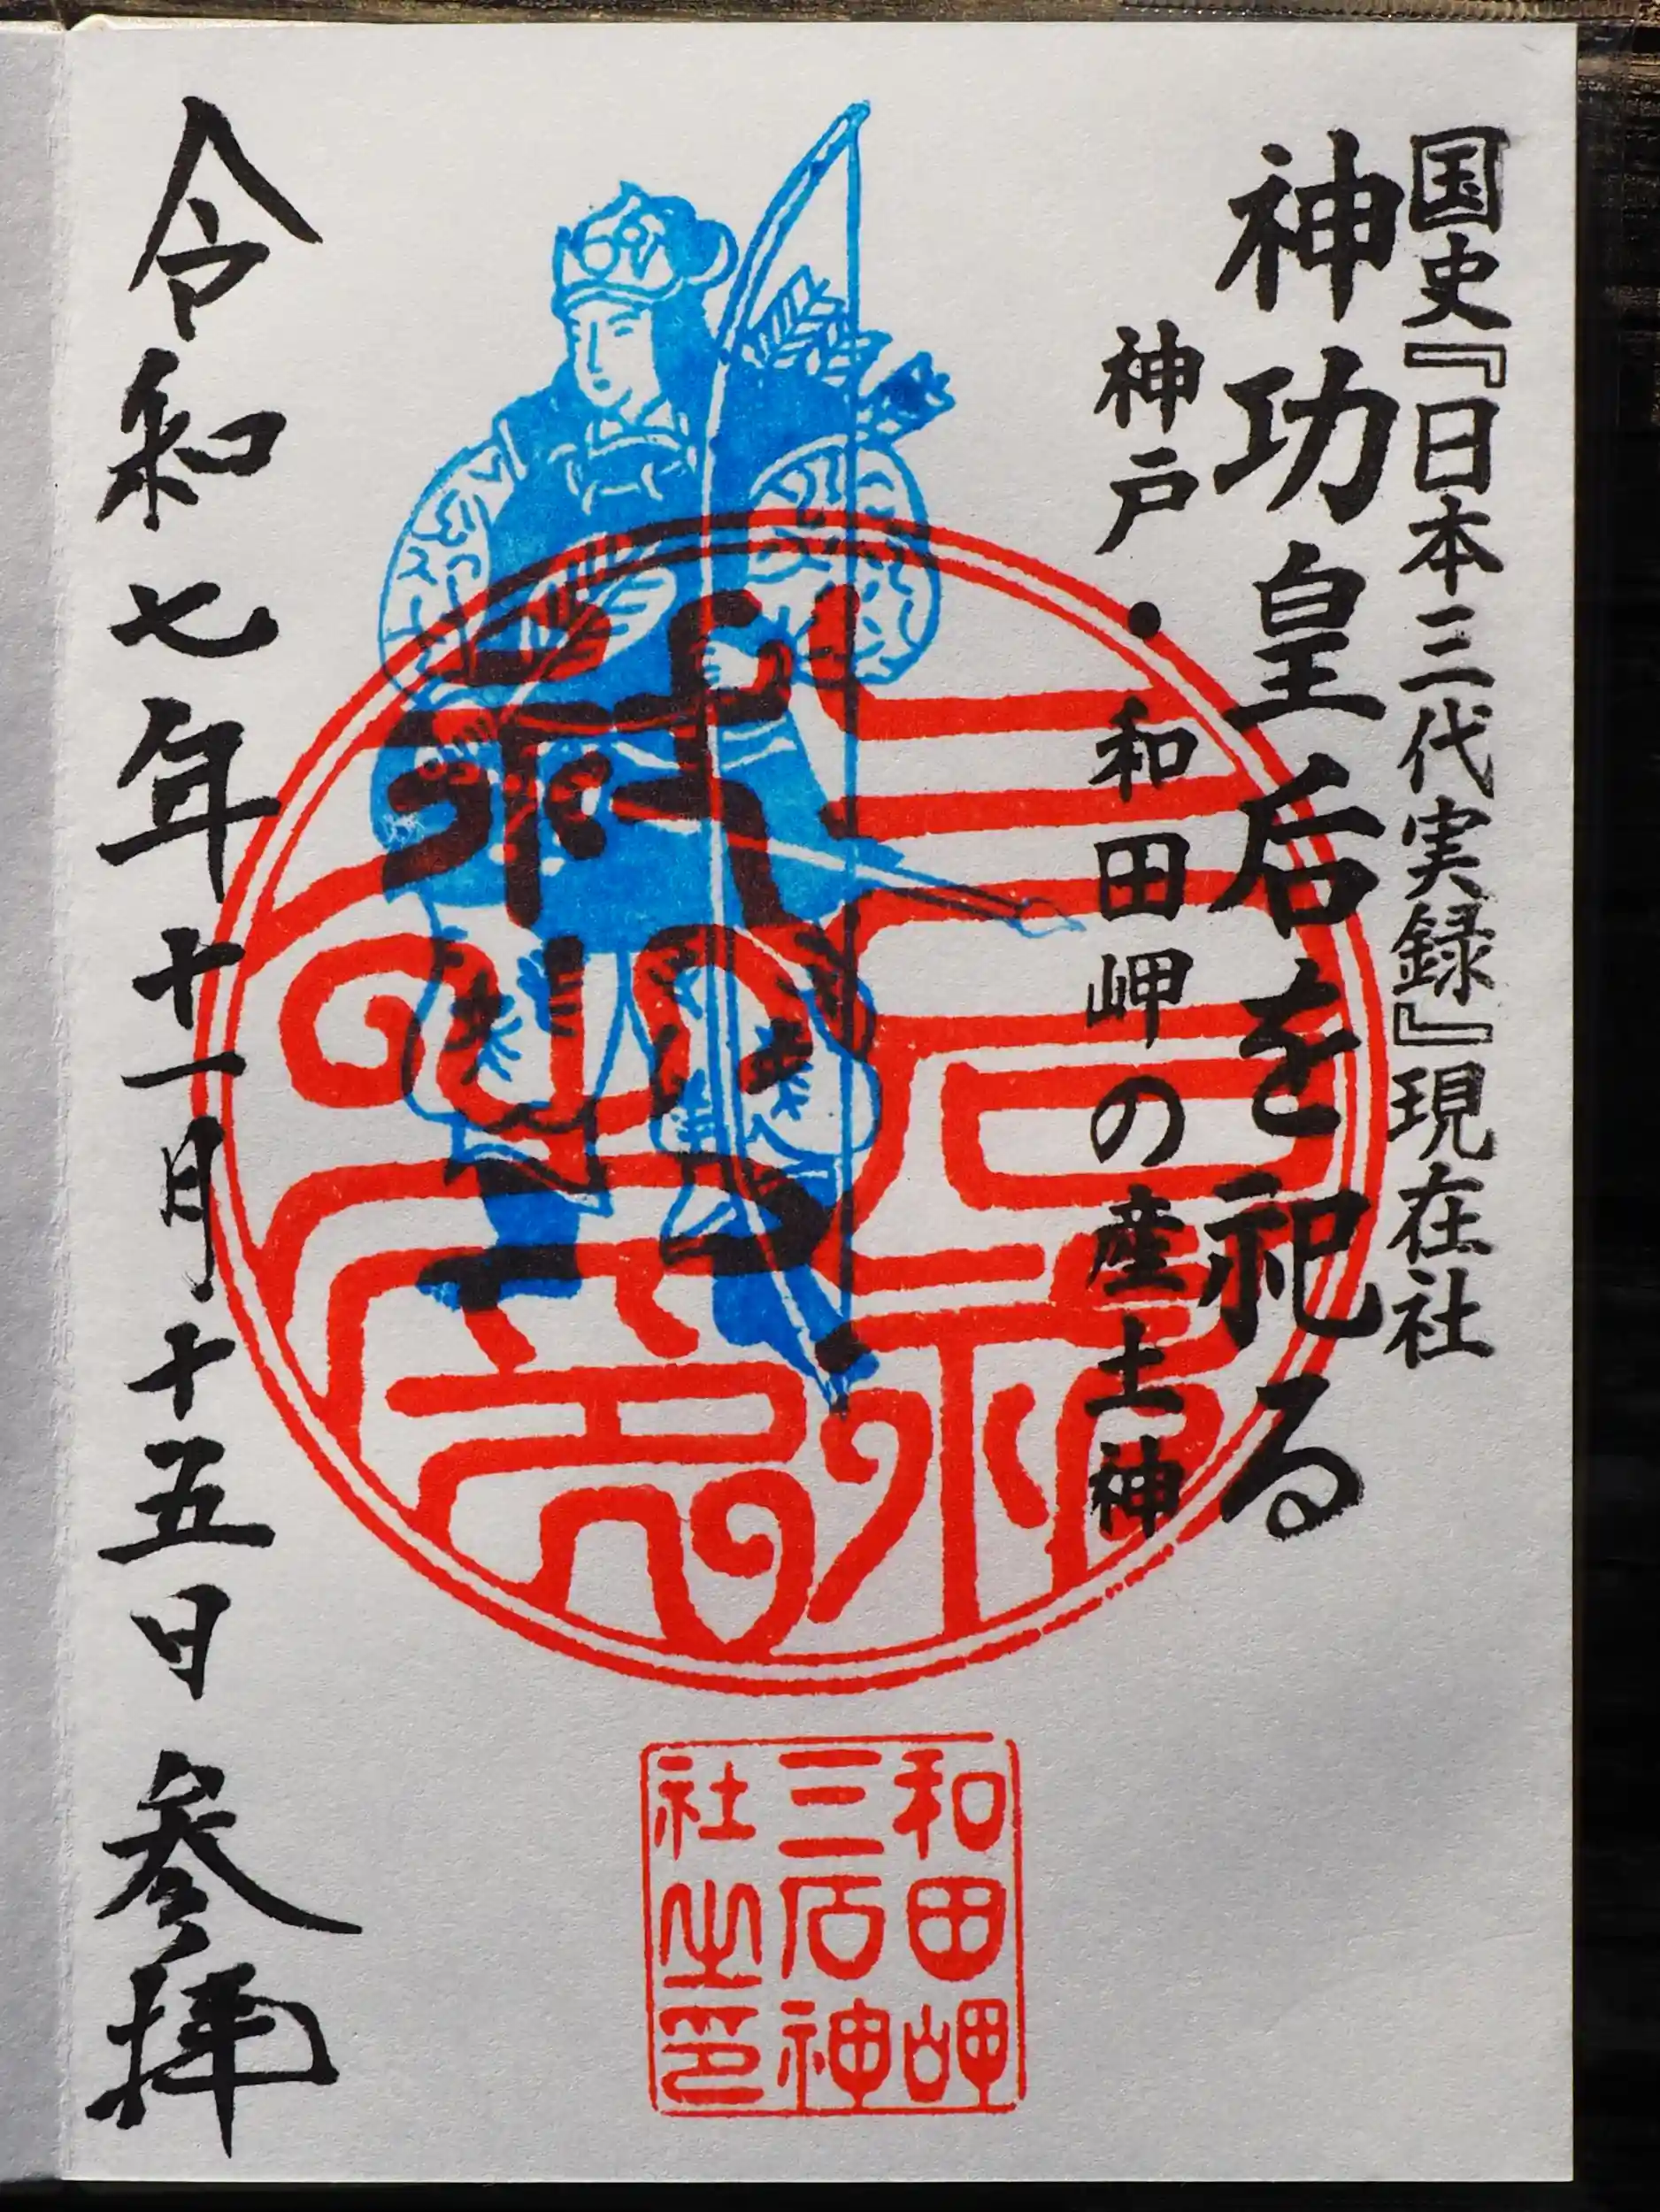 国史『日本三代実録』現在社
神功皇后を祀る
神戸・和田岬の産土神
和田岬
三石神
社之印
令和七年十一月十五日 参拝